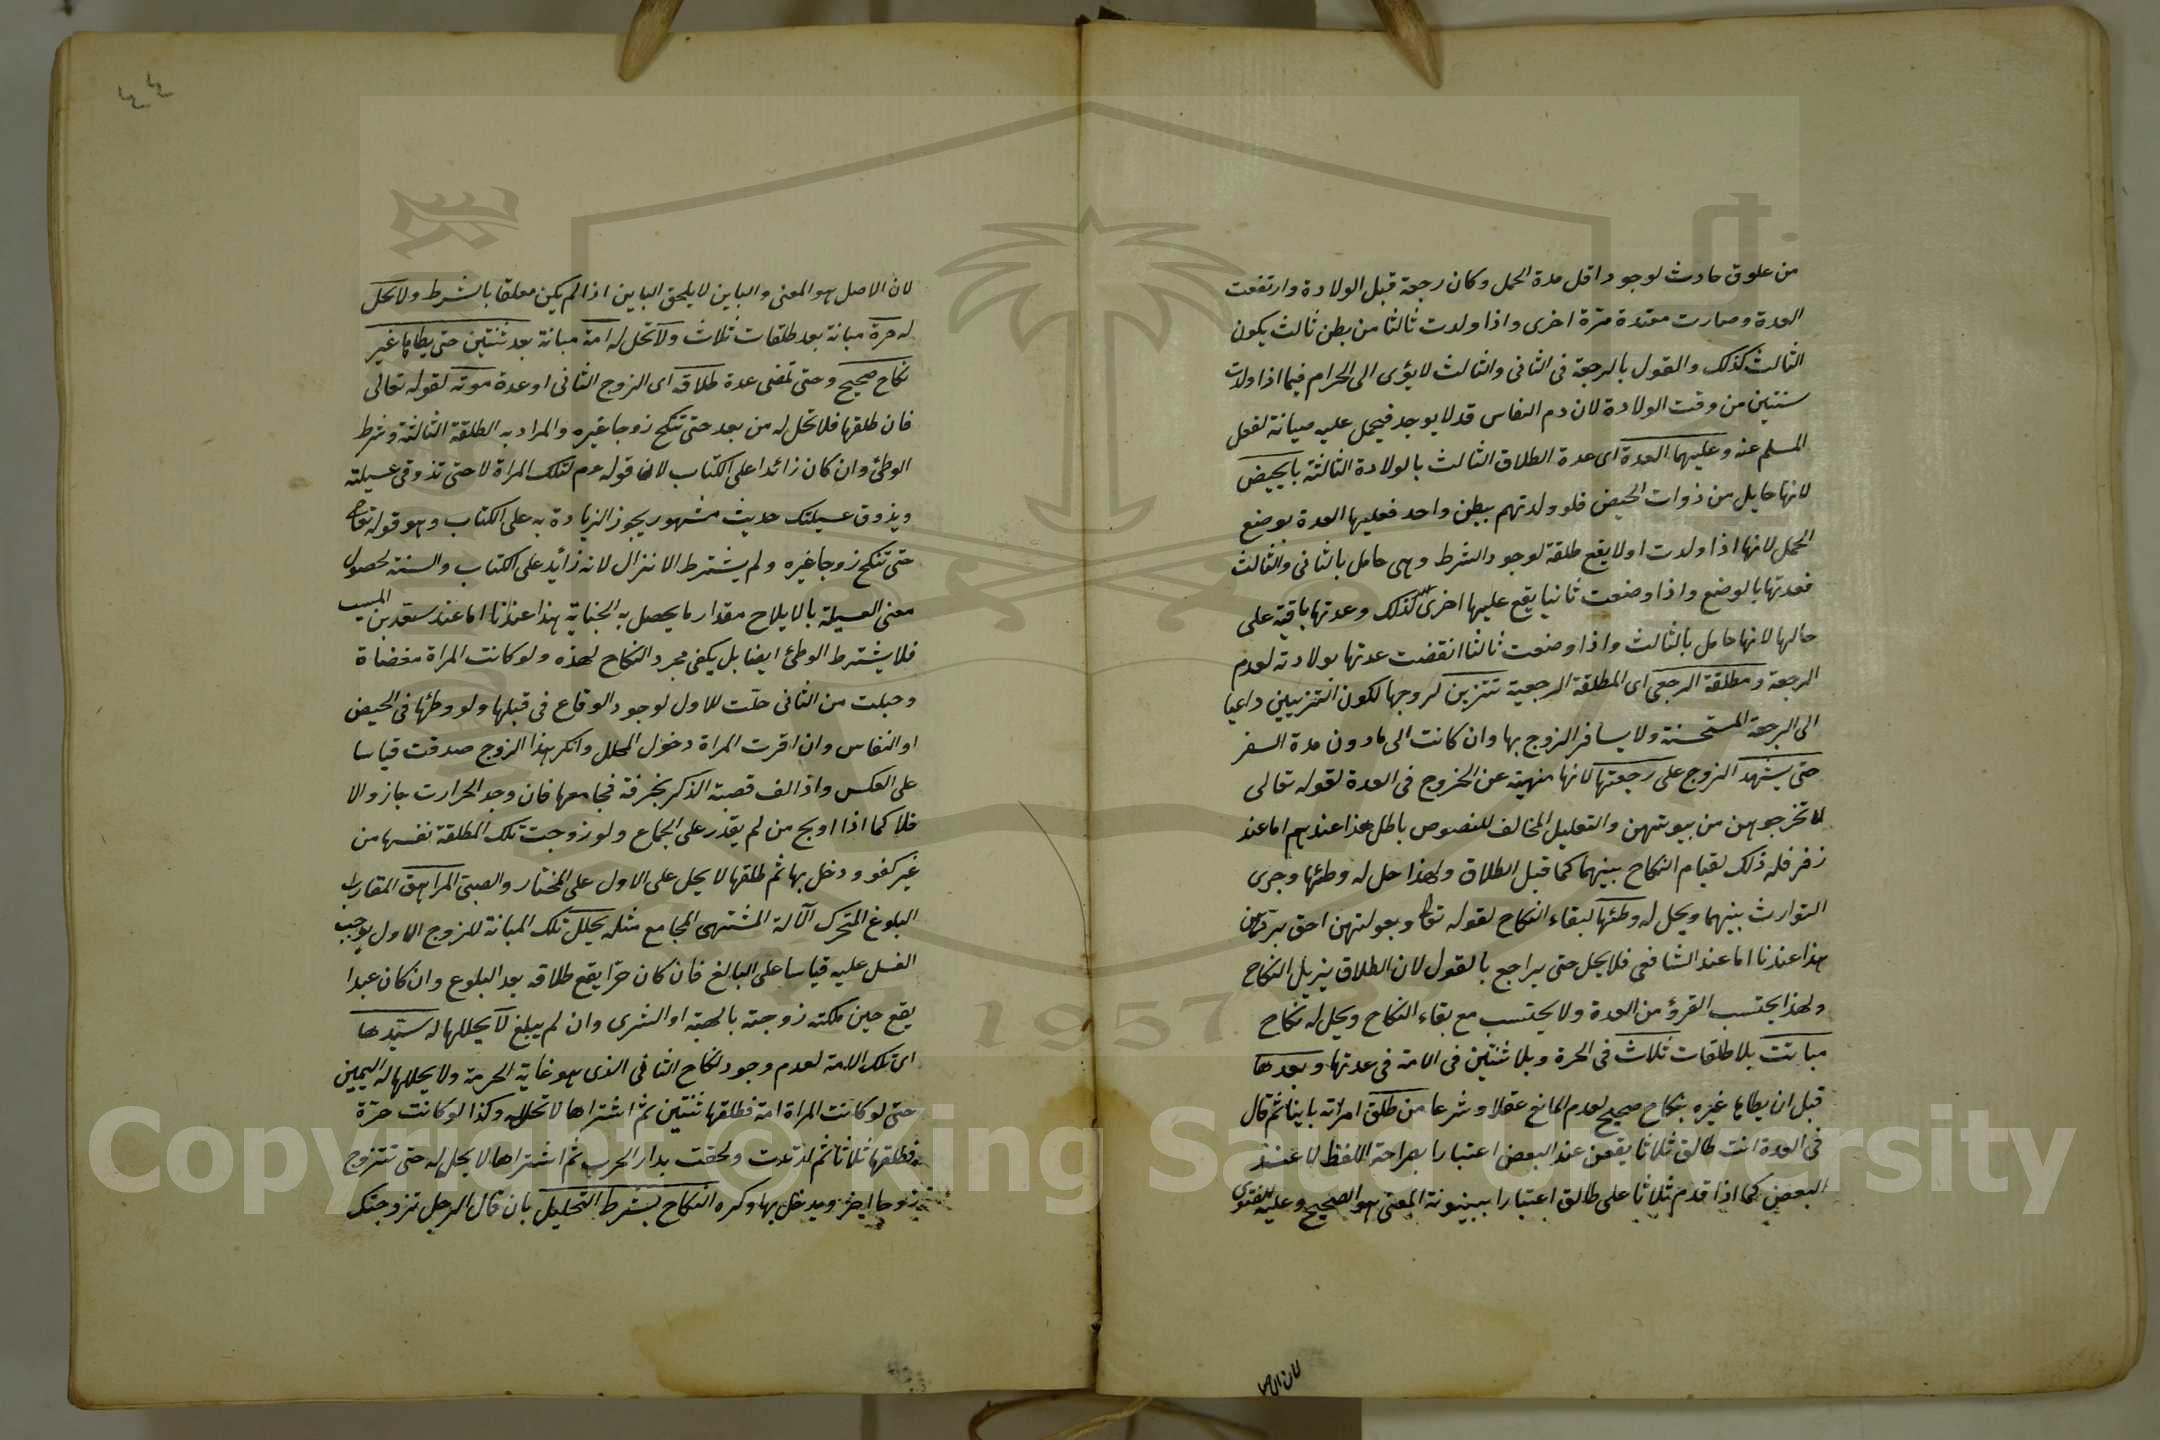 من علوق حادث لوجود اقل مدة الحمل وكان رجعة قبل الولادة وارتفعت
العدة وصارت معتدة مرة اخرى واذا ولدت ثالثا من بطن ثالث يكون
الثالث كذلك والقول بالرجعة فى الثانى والثالث لا يؤدى الى الحرام فيما اذا ولدت
سنتين من وقت الولادة لان دم النفاس قد لا يوجد فيحمل عليه صيانة لفعل
المسلم عنه وعليهما العدة اى عدة الطلاق الثالث بالولادة الثالثة بالحيض
لانها حايل من ذوات الحيض فلو ولدتهم ببطن واحد فعليها العدة بوضع
الحمل لانها اذا ولدت اولا يقع طلقة لوجود الشرط وهى حامل بالثانى والثالث
فعدتها بالوضع واذا وضعت ثانيا يقع عليها اخرى كذلك وعدتها باقية على
حالها لانها حامل بالثالث واذا وضعت ثالثا انقضت عدتها بولادته لعدم
الرجعة ومطلقة الرجعى اى المطلقة الرجعية تتزين لزوجها لكون التزيين داعيا
الى الرجعة المستحسنة ولا يسافر الزوج بها وان كانت الى مادون مدة السفر
حتى يشهد الزوج على رجعتها لانها منهية عن الخروج فى العدة لقوله تعالى
لا تخرجوهن من بيوتهن والتعليل المخالف للنصوص باطل هذا عندهم اما عند
زفر فله ذلك لقيام النكاح بينهما كما قبل الطلاق ولهذا حل له وطئها وجرى
التوارث بينهما ويحل له وطئها لبقاء النكاح لقوله تعا وبعولتهن احق بردهن
هذا عندنا اما عند الشافعى فلا يحل حتى يراجع بالقول لان الطلاق يزيل النكاح
ولهذا يحتسب القرؤ من العدة ولا يحتسب مع بقاء النكاح ويحل له نكاح
مبانته بلا طلقات ثلاث فى الحرة وبلا ثنتين فى الامة فى عدتها وبعدها
قبل ان يطاها غيره بنكاح صحيح لعدم المانع عقلا وشرعا من طلق امراته باينا ثم قال
فى العدة انت طالق ثلاثا يقعن عند البعض اعتبارا بصراحة اللفظ لا عند
البعض كما اذا قدم ثلاثا على طالق اعتبارا ببينونة المعنى هو الصحيح وعليه الفتوى
لان الاصل
لان الاصل هو المعنى والباين لا يلحق الباين اذا لم يكن معلقا بالشرط ولا تحل
له حرة مبانة بعد طلقات ثلاث ولا تحل له امة مبانة بعد ثنتين حتى يطاها غير
نكاح صحيح وحتى تمضى عدة طلاقه اى الزوج الثانى او عدة موته لقوله تعالى
فان طلقها فلا تحل له من بعد حتى تنكح زوجا غيره والمراد به الطلقة الثالثة وشرط
الوطئ وان كان زائدا على الكتاب لان قوله عم لتلك المراة لا حتى تذوقى عسيلته
ويذوق عسيلتك حديث مشهور يجوز الزيادة به على الكتاب وهو قوله تعا
حتى تنكح زوجا غيره ولم يشترط الانزال لانه زائد على الكتاب والسنة لحصول
معنى العسيلة بالايلاج مقدار ما يحصل به الجنابة هذا عندنا اما عند سعد بن المسيب
فلا يشترط الوطئ ايضا بل يكفى مجرد النكاح لهذه ولو كانت المراة مفضاة
وحبلت من الثانى حلت للاول لوجود الوقاع فى قبلها ولو وطئها فى الحيض
او النفاس وان اقرت المراة دخول المحلل وانكر هذا الزوج صدقت قياسا
على العكس واذا لف قصبة الذكر بخرقة فجامعها فان وجد الحرارت جاز والا
فلا كما اذا اولج من لم يقدر على الجماع ولو زوجت تلك المطلقة نفسها من
غير كفو ودخل بها ثم طلقها لا يحل على الاول على المختار والصبى المراهق المقارب
البلوغ المتحرك الآلة المشتهى المجامع مثله يحلل تلك المبانة للزوج الاول يوجب
الغسل عليه قياسا على البالغ فان كان حرا يقع طلاقه بعد البلوغ وان كان عبدا
يقع حين ملكته زوجته بالهبة او الشرى وان لم يبلغ لا يحللها له سيدها
اى تلك الامة لعدم وجود نكاح الثانى الذى هو غاية الحرمة ولا يحللها له اليمين
حتى لو كانت المراة امة فطلقها ثنتين ثم اشتراها لا تحل له وكذا لو كانت حرة
فطلقها ثلاثا ثم ارتدت ولحقت بدار الحرب ثم اشتراها لا يحل له حتى تتزوج
زوجا اخر ويدخل بها وكره النكاح بشرط التحليل بان قال الرجل تزوجتك
Copyright © King Saud University
1957